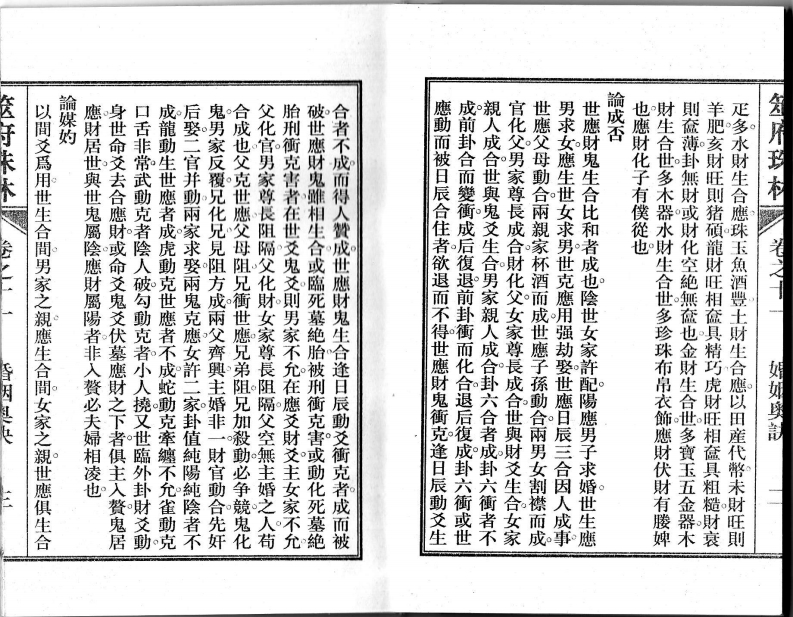 筮府珠林 卷之十一 婚姻奧訣 二
疋。多水財生合應。珠玉魚酒豐。土財生合應。以田産代幣。未財旺則
羊肥。亥財旺則猪碩。龍財旺相奩具精巧。虎財旺相奩具粗糙。財衰
則奩薄。卦無財或財化空絶無奩也。金財生合世。多寶玉五金器。木
財生合世。多木器。水財生合世。多珍珠布帛衣飾。應財伏財有媵婢
也。應財化子有僕從也。
論成否
世應財鬼生合比和者成也。陰世女家許配。陽應男子求婚。世生應
男求女。應生世女求男。世克應用强劫娶。世應日辰三合因人成事。
世應父母動合兩親家杯酒而成。世應子孫動合兩男女割襟而成。
官化父男家尊長成合。財化父女家尊長成合。世與財爻生合女家
親人成合。世與鬼爻生合男家親人成合。卦六合者成。卦六衝者不
成。前卦合而變衝。成后復退。前卦衝而化合。退后復成。卦六衝或世
應動而被日辰合住者。欲退而不得。世應財鬼衝克。逢日辰動爻生
合者。不成而得人贊成。世應財鬼生合。逢日辰動爻衝克者。成而被
破。世應財鬼雖相生合。或臨死墓絶胎。被刑衝克害。或動化死墓絶
胎刑衝克害者。在世爻鬼爻則男家不允。在應爻財爻主女家不允。
父化官男家尊長阻隔。父化財女家尊長阻隔。父空無主婚之人。苟
合成也。父克世應父母阻。兄衝世應兄弟阻。兄加殺動必争競。鬼化
鬼男家反覆。兄化兄見阻方成。兩父齊興主婚非一。財官動合先奸
后娶。二官并動兩家求娶。兩鬼克應女許二家。卦值純陽純陰者不
成。龍動生世應者成。虎動克世應者不成。蛇動克牽纏不允。雀動克
口舌非常。武動克者陰人破。勾動克者小人撓。又世臨外卦財爻動。
身世命爻去合應財。或命爻鬼爻伏墓應財之下者。俱主入贅。鬼居
應財居世與世鬼屬陰應財屬陽者。非入贅必夫婦相凌也。
論媒妁
以間爻爲用。世生合間男家之親。應生合間女家之親。世應俱生合
筮府珠林 卷之十一 婚姻奧訣 三